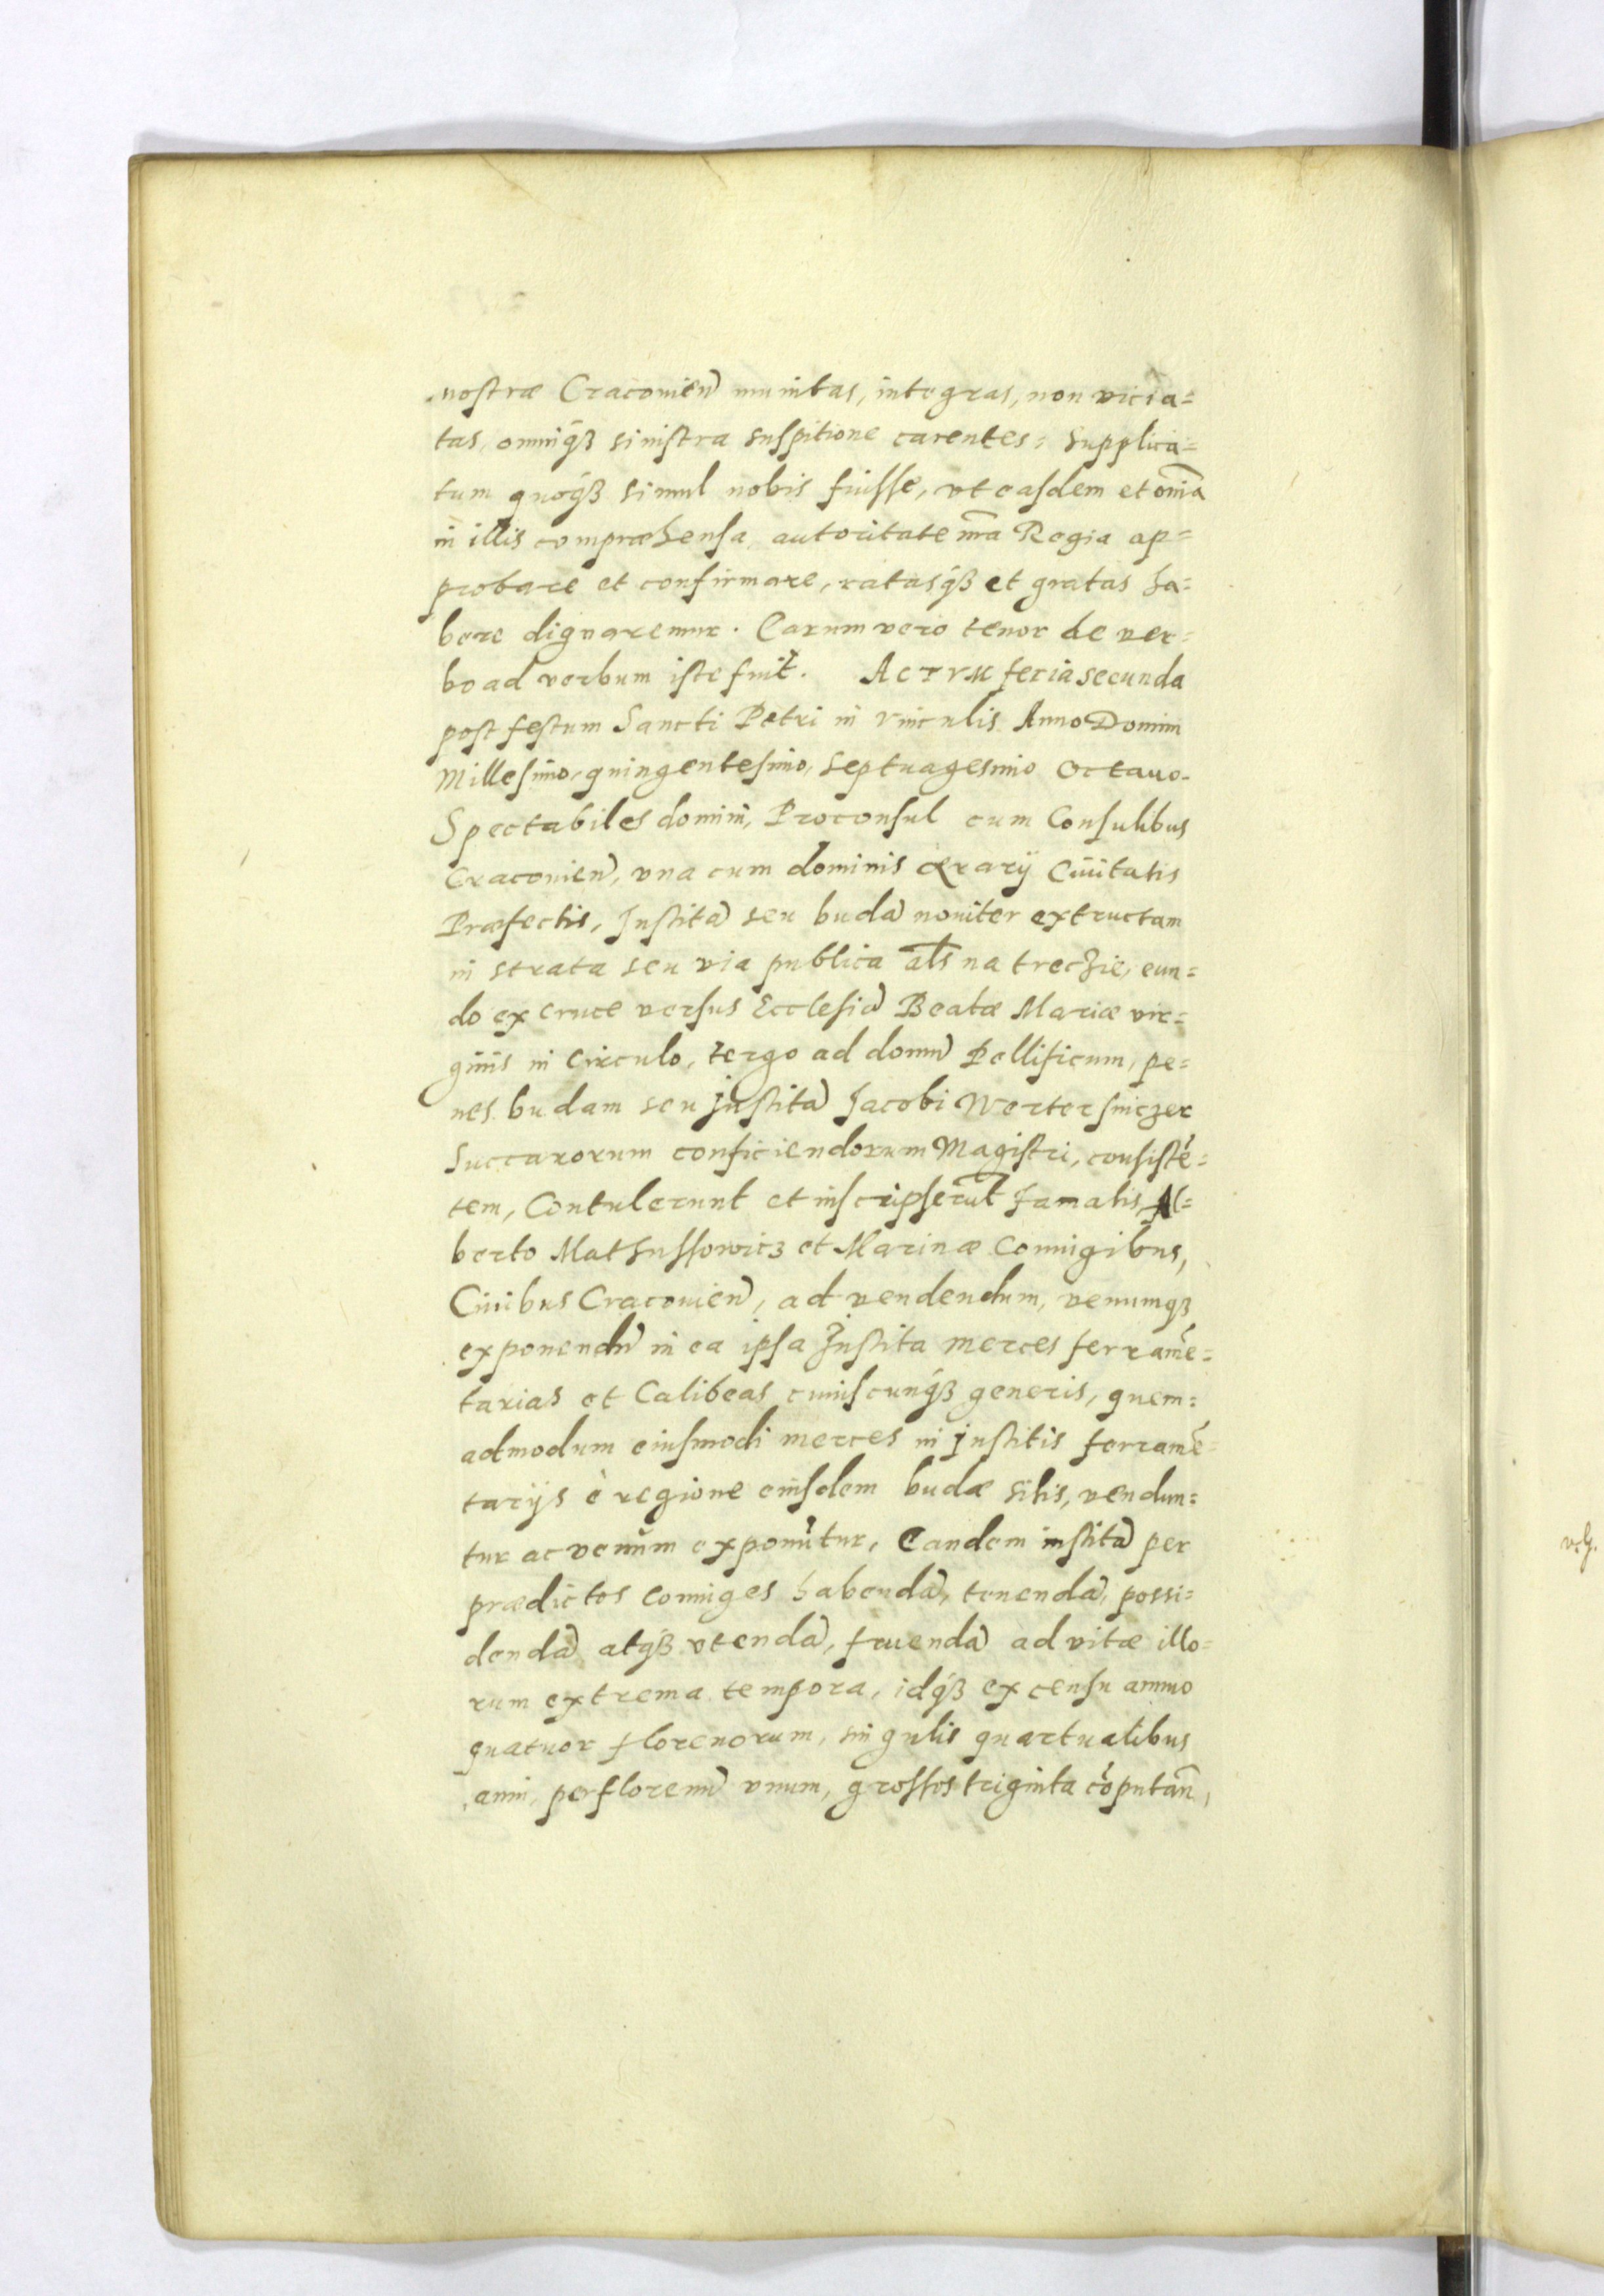 nostræ Cracouien̄ munitas, integras, non vicia=
tas, omniq̃ȝ sinistra suspitione carentes: Supplica=
tum quoq̃ȝ simul nobis fuisse, vt easdem et om̄ia
in illis compræhensa autoritate nr̄a Regia ap=
probare et confirmare, ratasq̃ȝ et gratas ha=
bere dignaremur. Earum vero tenor de ver=
bo ad verbum iste fuit. Actvm feria secunda
post festum Sancti Petri in vinculis Anno Domini
Millesimo, quingentesimo, Septuagesimo Octauo.
Spectabiles domini, Proconsul cum Consulibus
Cracouien̄, vna cum dominis ærarij Ciuitatis
Præfectis, Institā seu budā nouiter extructam
in strata seu via publica al̄s na treczie, eun=
do ex cruce versus Ecclesiā Beatæ Mariæ vir=
ginis in Circulo, tergo ad domū Pellificum, pe=
nes budam seu justitā Jacobi Wertersniczer
Succarorum conficiendorum Magistri, consistē=
tem, Contulerunt et inscripserūt Famatis, Al=
berto Mathussowicz et Marinæ Coniugibus,
Ciuibus Cracouien̄, ad vendendum, venumqȝ
exponendū in ea ipsa Institā merces ferramē=
tarias et Calibeas cuiuscunq̃ȝ generis, quem=
admodum eiusmodi merces in justitis ferramē=
tarijs è regione eiusdem budæ sitis, vendun=
tur ac venum exponūtur, Eandem institā per
prædictos Coniuges habendā, tenendā, possi=
dendā atq̃ȝ vtendā, fruendā ad vitæ illo=
rum extrema tempora, idq̃ȝ ex censu annuo
quatuor florenorum, singulis quartualibus
anni, per florenū vnum, grossos triginta cōputan̄,